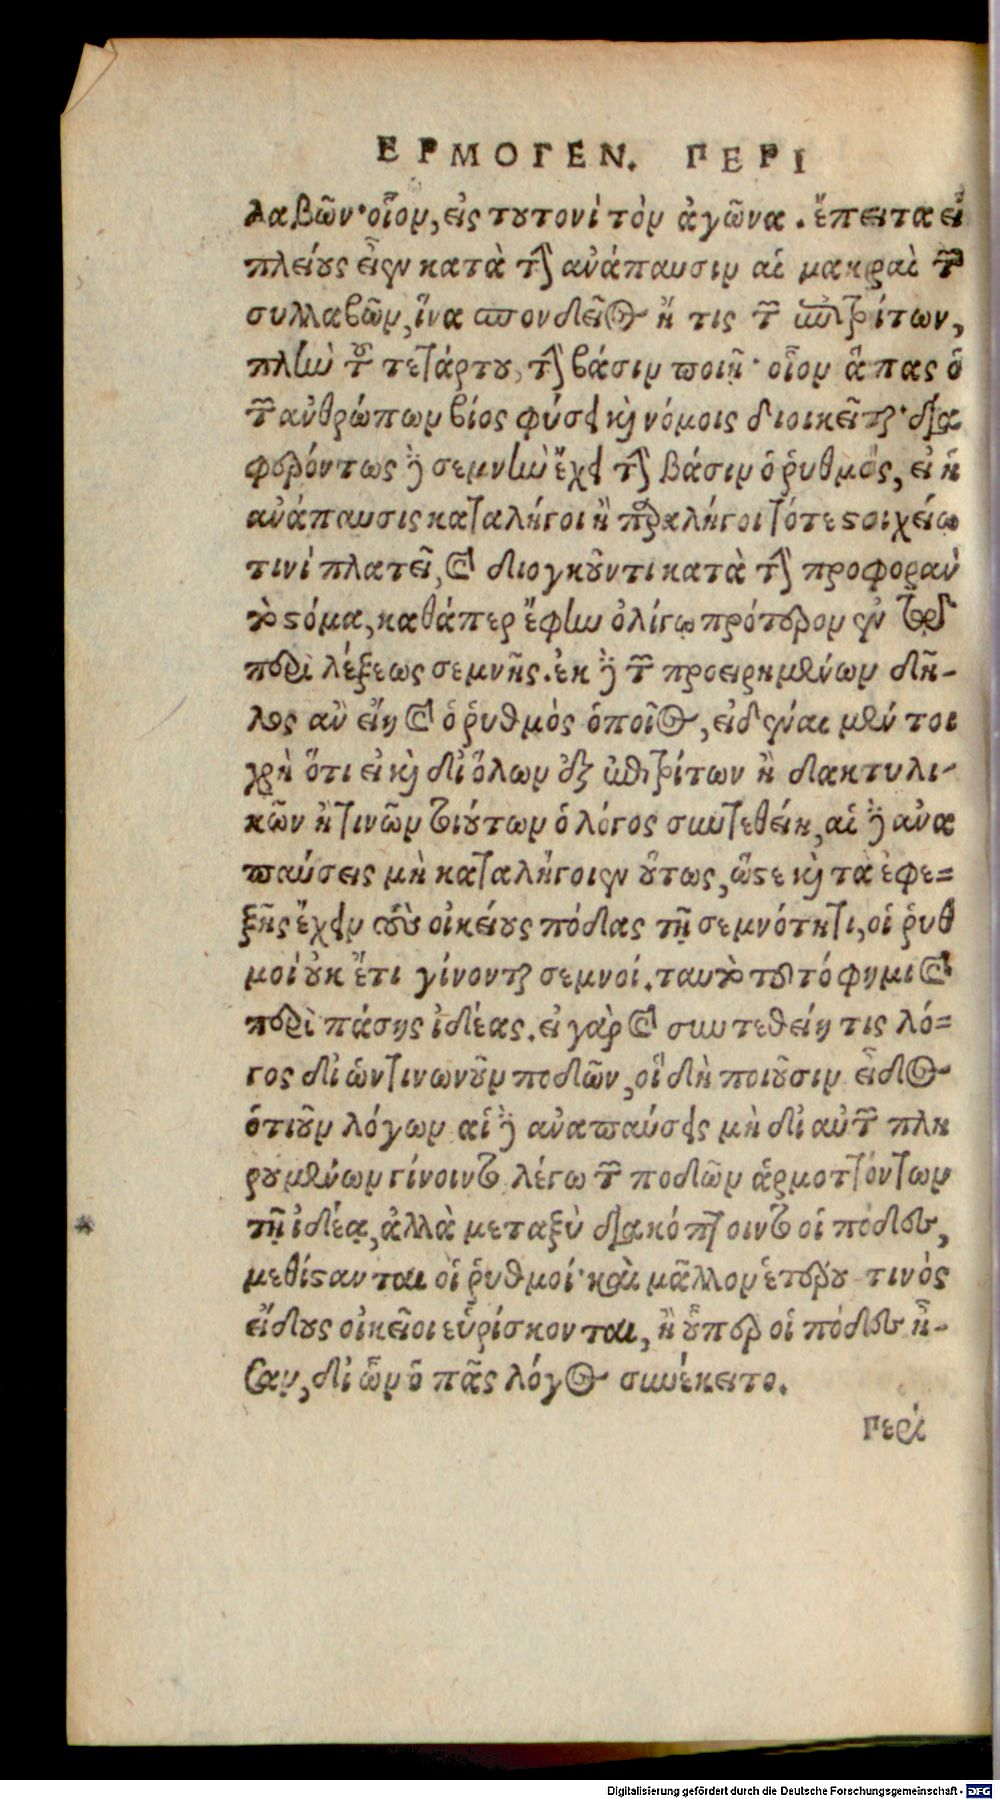 ΕΡΜΟΓΕΝ. ΠΕΡΙ
λαβῶν· οἷον, εἰς τουτονὶ τὸν ἀγῶνα. ἔπειτα εἰ
πλείους εἶεν κατὰ τὴν ἀνάπαυσιν αἱ μακραὶ τῶν
συλλαβῶν, ἵνα σπονδεῖος ἤ τις τῶν ἐπιτρίτων,
πλὴν τοῦ τετάρτου, τὴν βάσιν ποιῇ· οἷον ἅπας ὁ
τῶν ἀνθρώπων βίος φύσει καὶ νόμοις διοικεῖται· δια
φερόντως δὲ σεμνὴν ἔχει τὴν βάσιν ὁ ῥυθμός, εἰ ἡ
ἀνάπαυσις καταλήγοι ἢ παραλήγοι τότε στοιχείω
τινὶ πλατεῖ, καὶ διογκοῦντι κατὰ τὴν προφορὰν
τὸ στόμα, καθάπερ ἔφην ὀλίγω πρότερον ἐν τοῖς
περὶ λέξεως σεμνῆς. ἐκ δὲ τῶν προειρημένων δῆ-
λος ἂν εἴη καὶ ὁ ῥυθμὸς ὁποῖος, εἰδέναι μέν τοι
χρὴ ὅτι εἰ καὶ δι' ὅλων ἐξ ἐπιτρίτων ἢ δακτυλι-
κῶν ἤ τινῶν τοιούτων ὁ λόγος συντεθείη, αἱ δὲ ἀνα
παύσεις μὴ καταλήγοιεν οὕτως, ὥστε καὶ τὰ ἐφε=
ξῆς ἔχειν τοὺς οἰκείους πόδας τῇ σεμνότητι, οἱ ῥυθ
μοί οὐκ ἔτι γίνονται σεμνοί. ταυτὸ τοῦτό φημι καὶ
περὶ πάσης ἰδέας. εἰ γὰρ καὶ συντεθείη τις λό=
γος δι' ὡντινωνοῦν ποδῶν, οἳ δὴ ποιοῦσιν εἶδος
ὁτιοῦν λόγων αἱ δὲ ἀναπαύσεις μὴ δι' αὐτῶν πλη
ρουμένων γίνοιντο λέγω τῶν ποδῶν ἁρμοττόντων
τῇ ἰδέᾳ, ἀλλὰ μεταξὺ διακόπτοιντο οἱ πόδες,
μεθίστανται οἱ ῥυθμοί· καὶ μᾶλλον ἑτέρου τινὸς
εἴδους οἰκεῖοι εὑρίσκονται, ἢ οὗπερ οἱ πόδες ἦ-
σαν, δι' ὧν ὁ πᾶς λόγος συνέκειτο.
Περί
Digitalisierung gefördert durch die Deutsche Forschungsgemeinschaft - DFG